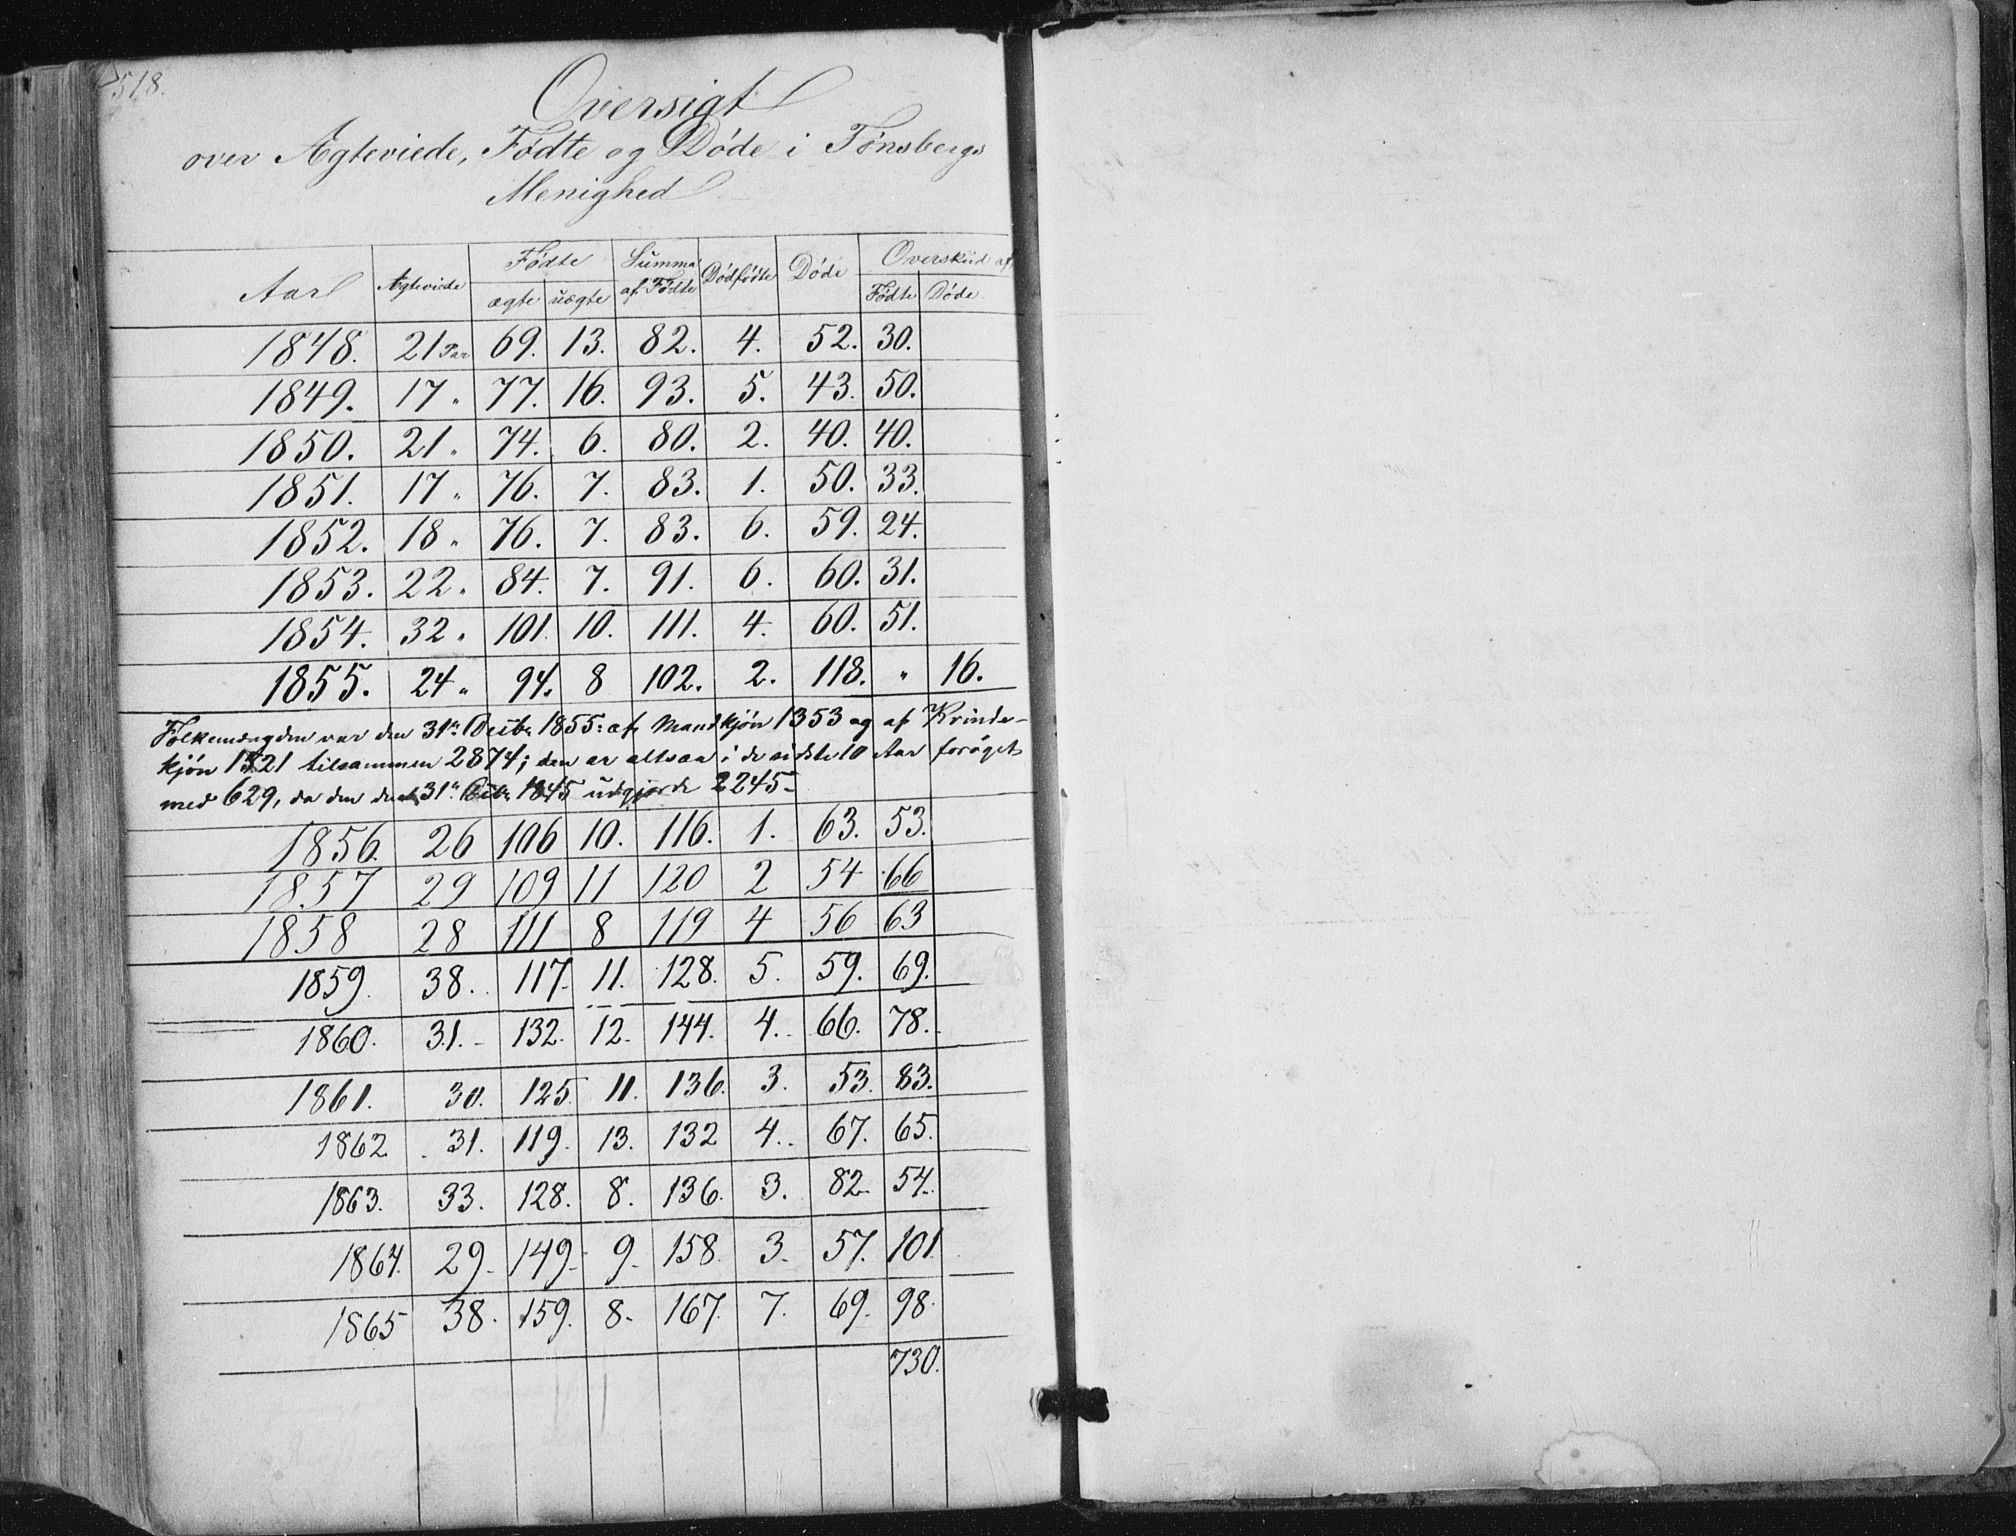 518.
Oversigt
over Ægteviede, Fødte og Døde i Tønsbergs
Menighed
Aar Ægteviede Fødte Summa af Fødte Dødfødte Døde Overskud af
ægte uægte Fødte Døde
1848. 21 Par 69. 13. 82. 4. 52. 30.
1849. 17 " 77. 16. 93. 5. 43. 50.
1850. 21 " 74. 6. 80. 2. 40. 40.
1851. 17 " 76. 7. 83. 1. 50. 33.
1852. 18 " 76. 7. 83. 6. 59. 24.
1853. 22 " 84. 7. 91. 6. 60. 31.
1854. 32 " 101. 10. 111. 4. 60. 51.
1855. 24 " 94. 8 102. 2. 118. " 16.
Folkemængden var den 31te Decbr. 1855: af Mandkjön 1353 og af Kvinde-
kjön 1521 tilsammen 2874; den er altsaa i de sidste 10 Aar forøget
med 629, da den den 31te Decbr. 1845 udgjorde 2245-
1856. 26 106 10. 116. 1. 63. 53.
1857 29 109 11 120 2 54 66
1858 28 111 8 119 4 56 63
1859. 38. 117. 11. 128. 5. 59. 69.
1860. 31.- 132. 12. 144. 4.- 66. 78.-
1861. 30. 125. 11. 136. 3. 53. 83.
1862 31. 119. 13. 132 4.. 67. 65.
1863. 33. 128. 8. 136. 3. 82- 54.-
1864. 29.- 149.- 9.- 158. 3.- 57. 101
1865 38. 159. 8.- 167. 7. 69.- 98.
730.